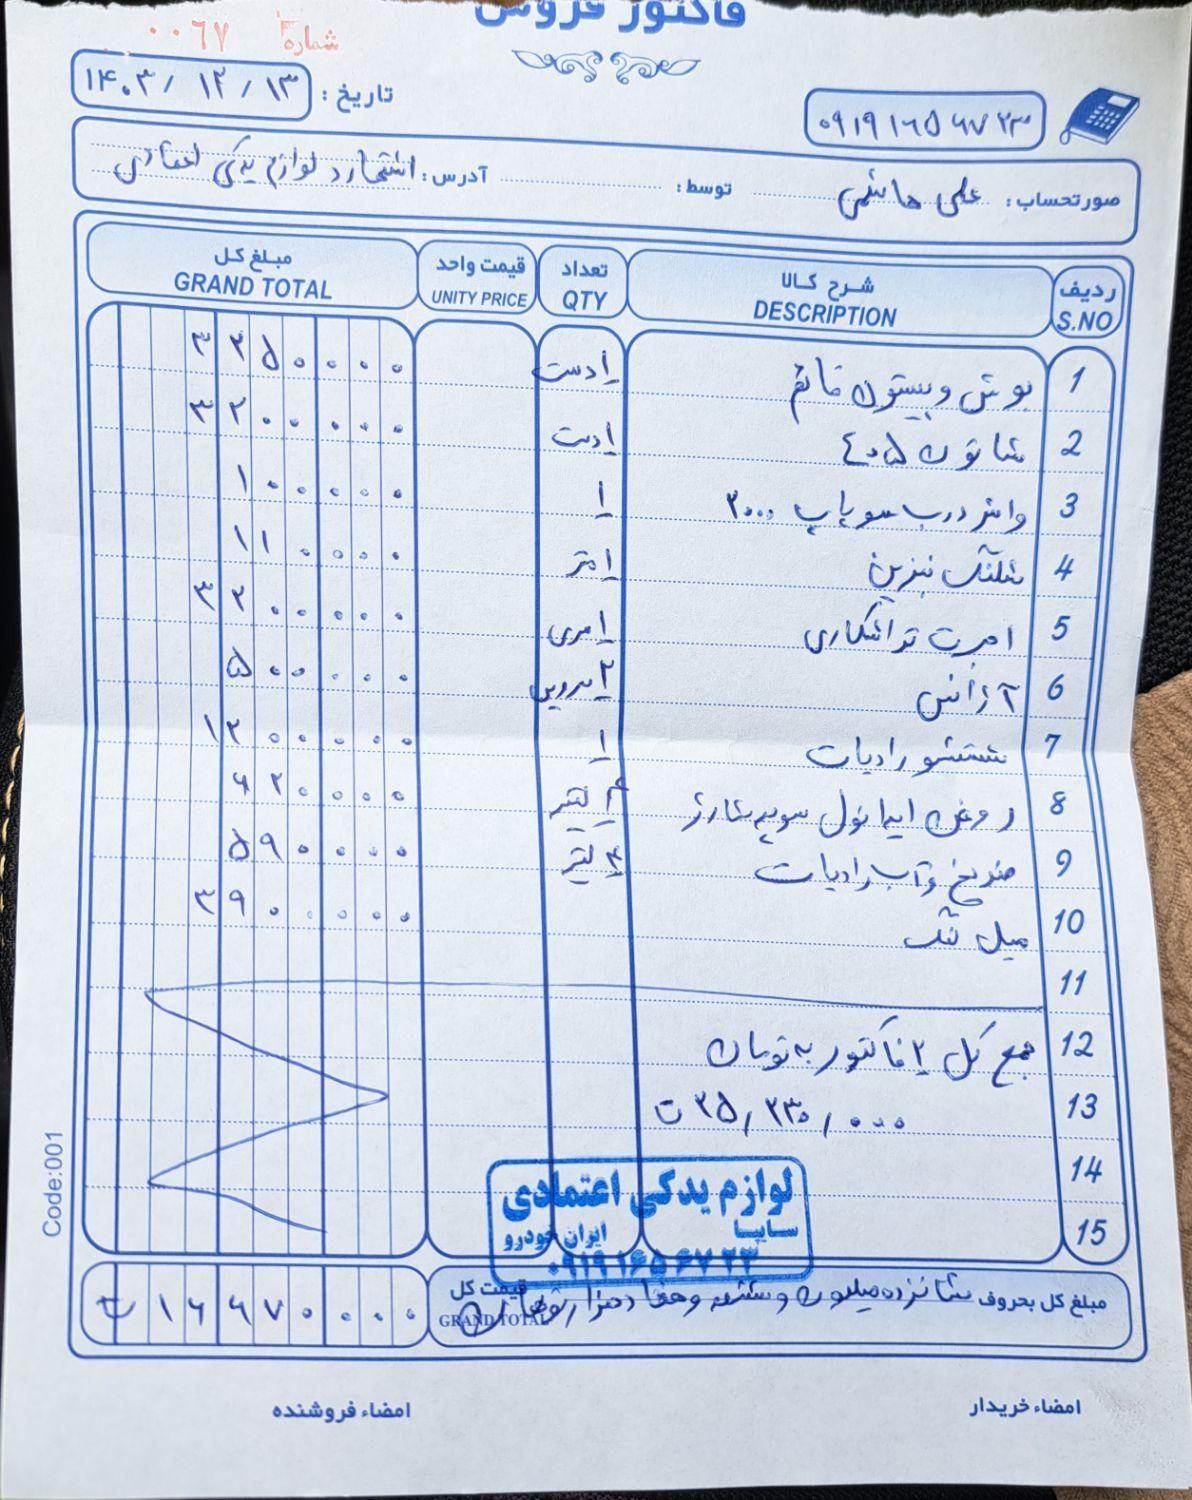 فاکتور فروش
شماره ۰۰۶۷
تاریخ : ۱۴۰۳/۱۲/۱۳
۰۹۱۹۱۶۵۶۷۲۳
صورتحساب : علی هاشمی توسط : آدرس : اشتهارد لوازم یدکی اعتمادی
ردیف شرح کالا تعداد قیمت واحد مبلغ کل
S.NO DESCRIPTION QTY UNITY PRICE GRAND TOTAL
1 بوش و پیستون قائم ۱ دست ۳۲۵۰۰۰۰
2 شاتون ۴۰۵ ۱ دست ۳۲۰۰۰۰۰
3 واشر درب سوپاپ ۲۰۰۰ ۱ ۱۰۰۰۰۰
4 شلنگ بنزین ۱ متر ۱۱۰۰۰۰
5 اجرت تراشکاری ۱ سری ۳۲۰۰۰۰۰
6 آژانس ۲ سرویس ۵۰۰۰۰۰
7 شستشو رادیات ۱ ۱۲۰۰۰۰۰
8 روغن ایرانول سوپر شارژ ۴ لیتر ۶۲۰۰۰۰
9 ضدیخ و آب رادیات ۴ لیتر ۵۹۰۰۰۰
10 میل لنگ ۳۹۰۰۰۰۰
11
12 جمع کل ۲ فاکتور به تومان
13 ۲۵/۲۳۰/۰۰۰ ت
14
15
لوازم یدکی اعتمادی
سایپا ایران خودرو
۰۹۱۹۱۶۵۶۷۲۳
مبلغ کل بحروف شانزده میلیون و ششصد و هفتاد هزار تومان قیمت کل ۱۶۶۷۰۰۰۰ ت
GRAND TOTAL
امضاء خریدار امضاء فروشنده
Code:001